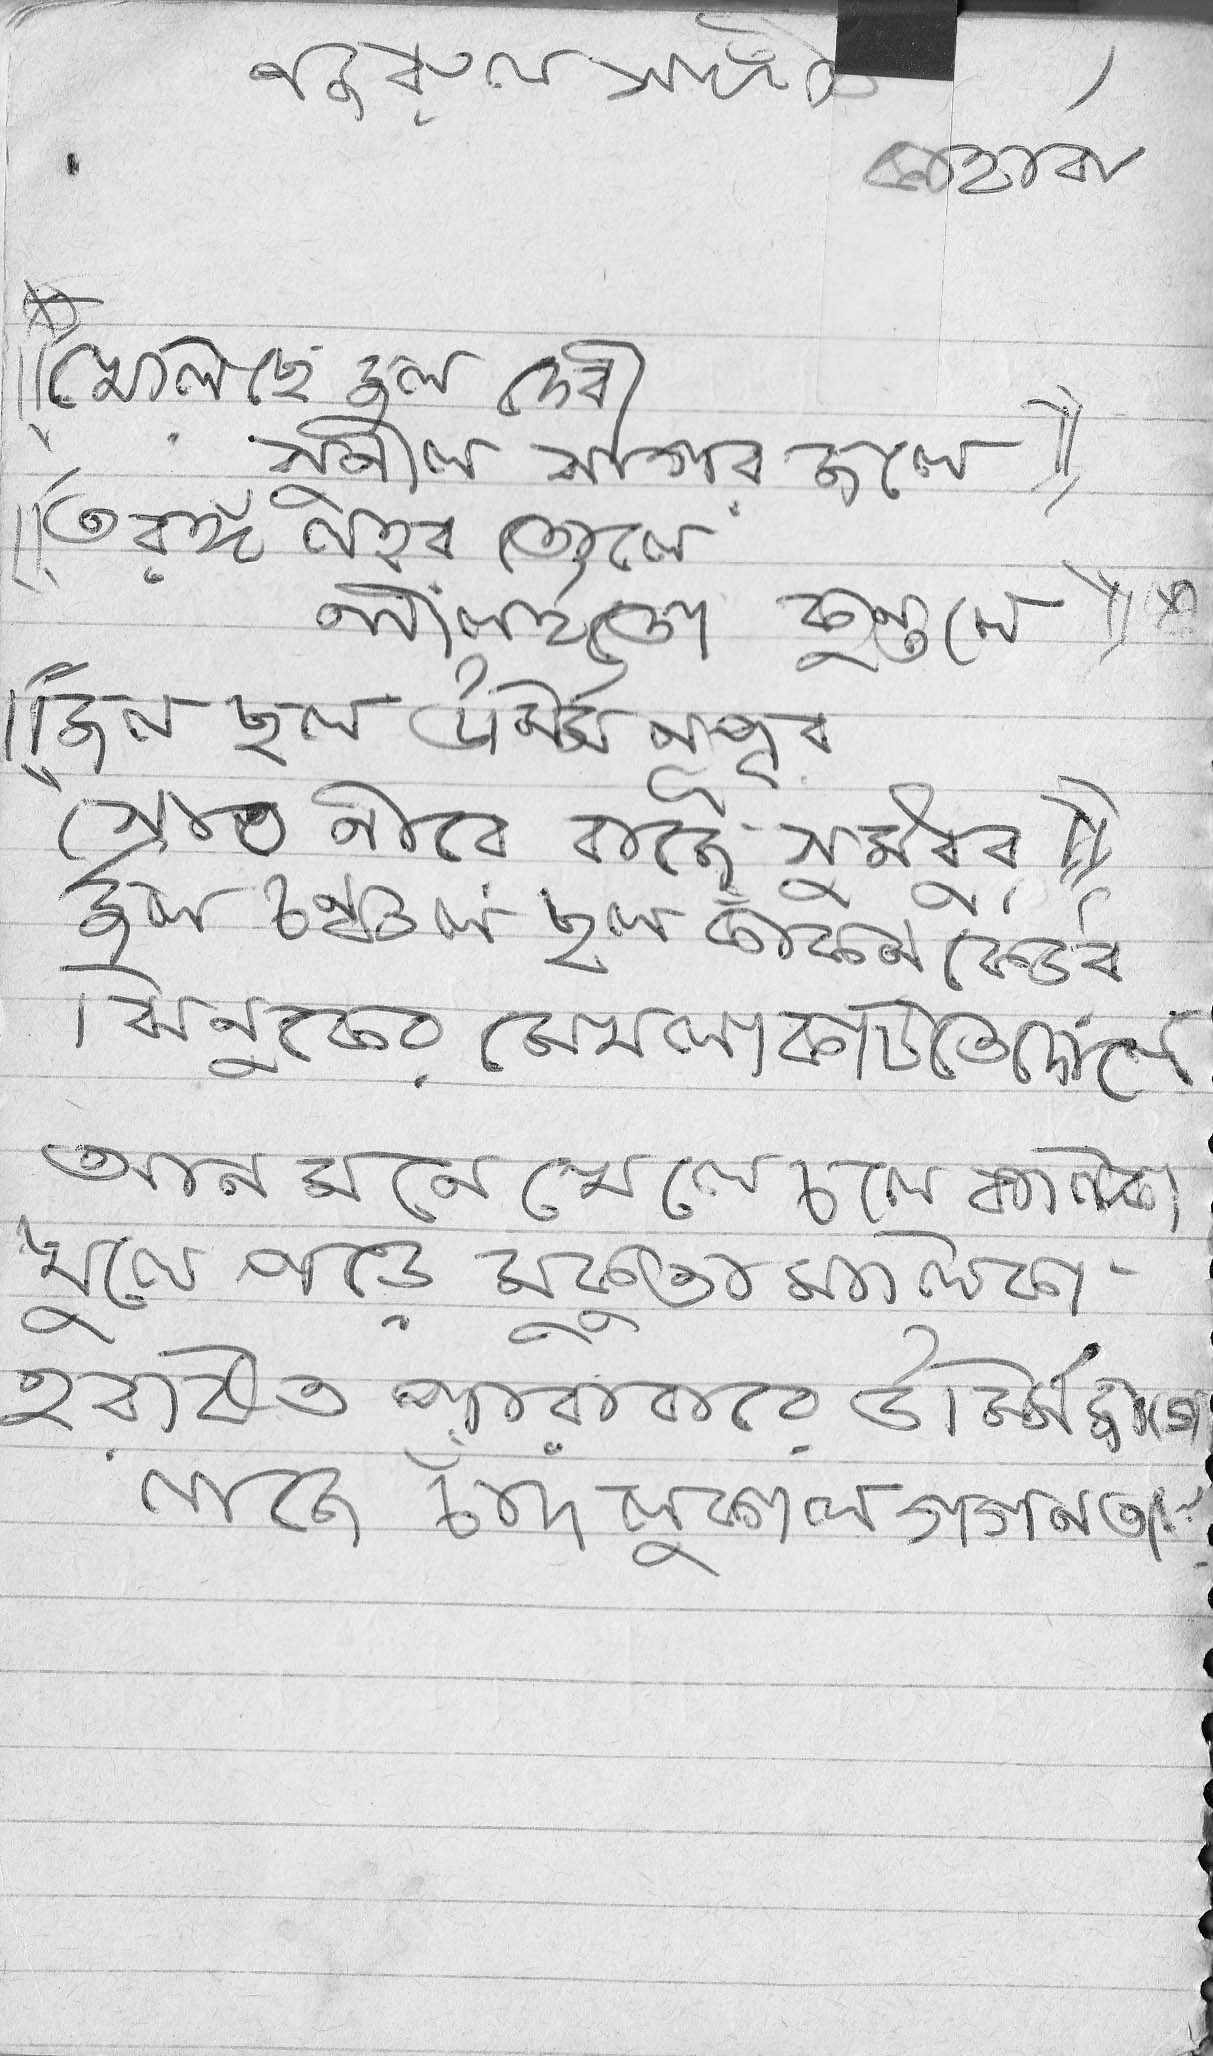 নজরুল সঙ্গীত
কাহারবা
খেলিছে জল দেবী
সুনীল সাগর জলে
তরঙ্গ লহর তোলে
লীলায়িত কুন্তলে
জল ছল ঊর্মি নূপুর
স্রোত নীরে বাজে সুমধুর
জল চঞ্চল ছল কাঁকন কেউর
ঝিনুকের মেখলা কটিতে দোলে
আনমনে খেলে চলে বালিকা
খুলে পড়ে মুকুতা মালিকা
হরষিত পারাবারে ঊর্মি জাগে
লাজে চাঁদ লুকাল গগন তলে